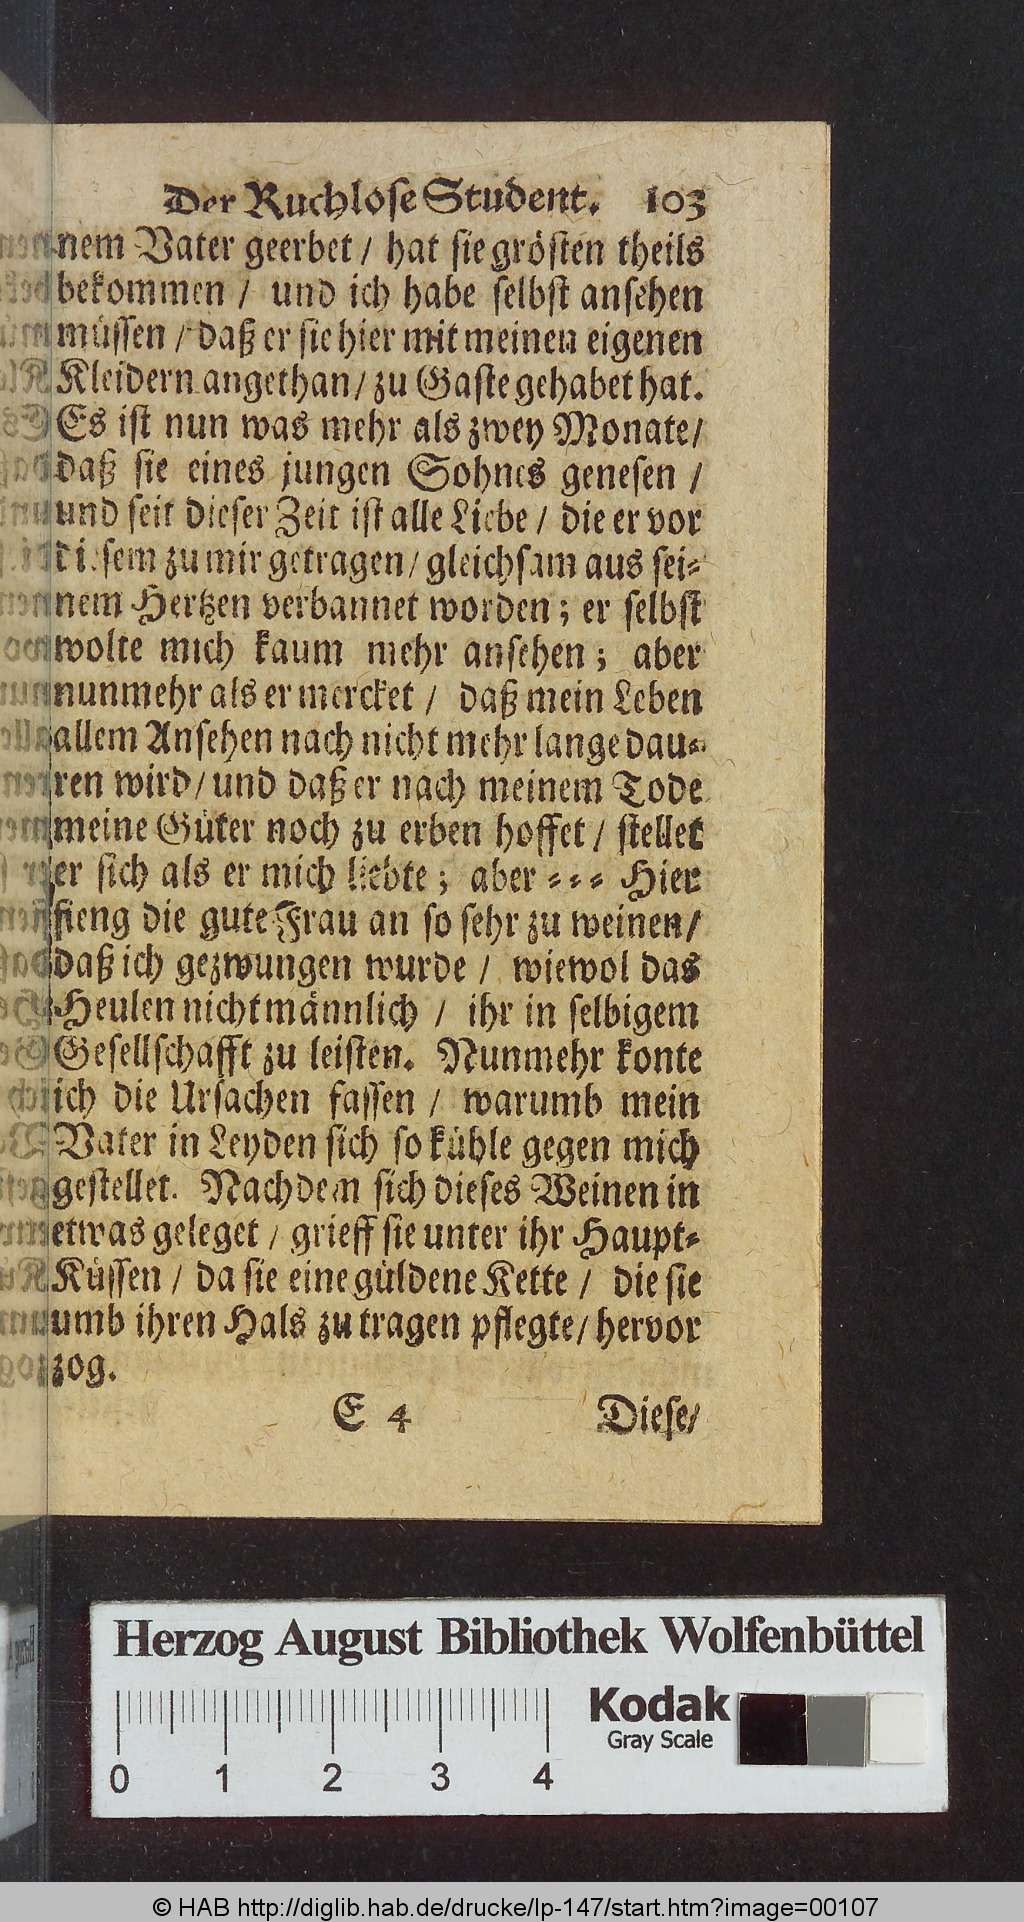 Der Ruchlose Student. 103
nem Vater geerbet / hat sie grösten theils
bekommen / und ich habe selbst ansehen
müssen / daß er sie hier mit meinen eigenen
Kleidern angethan / zu Gaste gehabet hat.
Es ist nun was mehr als zwey Monate /
daß sie eines jungen Sohnes genesen /
und seit dieser Zeit ist alle Liebe / die er vor
diesem zu mir getragen / gleichsam aus sei-
nem Hertzen verbannet worden; er selbst
wolte mich kaum mehr ansehen; aber
nunmehr als er mercket / daß mein Leben
allem Ansehen nach nicht mehr lange dau-
ren wird / und daß er nach meinem Tode
meine Güter noch zu erben hoffet / stellet
er sich als er mich liebte; aber - - - Hier
fieng die gute Frau an so sehr zu weinen /
daß ich gezwungen wurde / wiewol das
Heulen nicht männlich / ihr in selbigem
Gesellschafft zu leisten. Nunmehr konte
ich die Ursachen fassen / warumb mein
Vater in Leyden sich so kühle gegen mich
gestellet. Nachdem sich dieses Weinen in
etwas geleget / grieff sie unter ihr Haupt-
Küssen / da sie eine güldene Kette / die sie
umb ihren Hals zu tragen pflegte / hervor
zog.
E 4 Diese /
Herzog August Bibliothek Wolfenbüttel
Kodak
Gray Scale
0 1 2 3 4
© HAB http://diglib.hab.de/drucke/lp-147/start.htm?image=00107